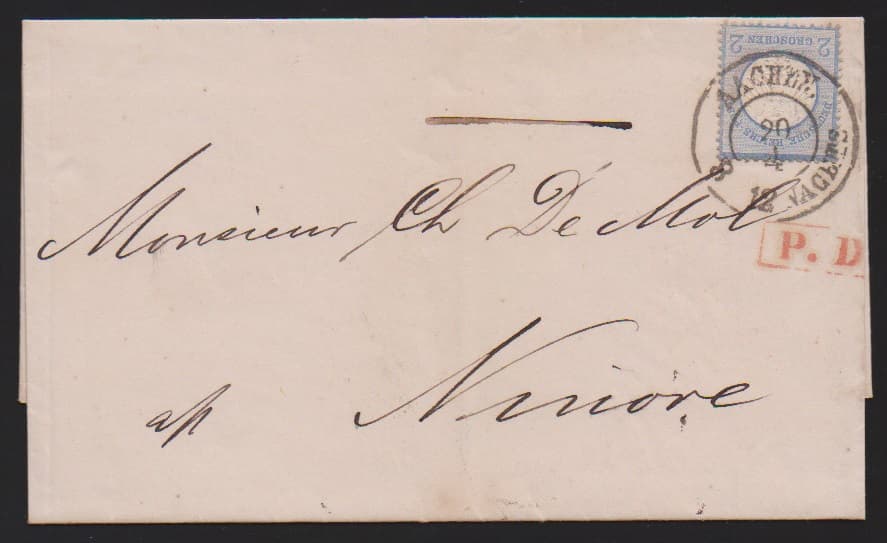 2 GROSCHEN 2
DEUTSCHE REICHS
AACHEN
20
4
12 NACHMS
P. D
Monsieur Ch De Mol
Ninove